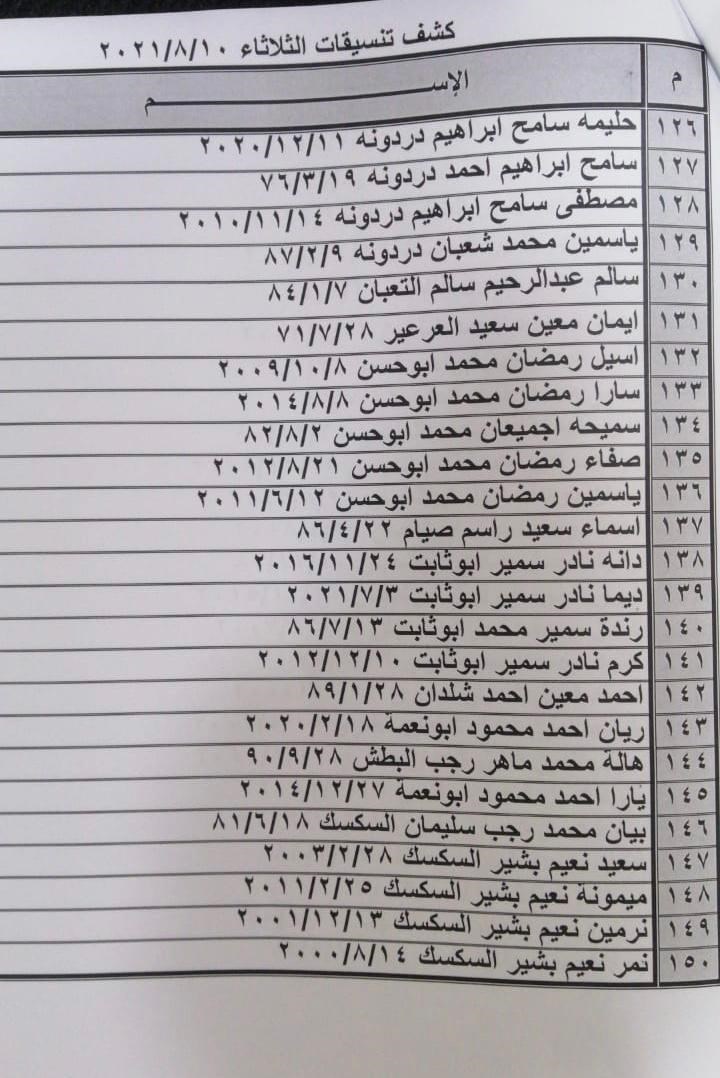 كشف تنسيقات الثلاثاء ٢٠٢١/٨/١٠
م الإســـــــــــــــــــــــــــــم
١٢٦ حليمه سامح ابراهيم دردونه ٢٠٢٠/١٢/١١
١٢٧ سامح ابراهيم احمد دردونه ٧٦/٣/١٩
١٢٨ مصطفى سامح ابراهيم دردونه ٢٠١٠/١١/١٤
١٢٩ ياسمين محمد شعبان دردونه ٨٧/٢/٩
١٣٠ سالم عبدالرحيم سالم التعبان ٨٤/١/٧
١٣١ ايمان معين سعيد العرعير ٧١/٧/٢٨
١٣٢ اسيل رمضان محمد ابوحسن ٢٠٠٩/١٠/٨
١٣٣ سارا رمضان محمد ابوحسن ٢٠١٤/٨/٨
١٣٤ سميحه اجميعان محمد ابوحسن ٨٢/٨/٢
١٣٥ صفاء رمضان محمد ابوحسن ٢٠١٢/٨/٢١
١٣٦ ياسمين رمضان محمد ابوحسن ٢٠١١/٦/١٢
١٣٧ اسماء سعيد راسم صيام ٨٦/٤/٢٢
١٣٨ دانه نادر سمير ابوثابت ٢٠١٦/١١/٢٤
١٣٩ ديما نادر سمير ابوثابت ٢٠٢١/٧/٣
١٤٠ رندة سمير محمد ابوثابت ٨٦/٧/١٣
١٤١ كرم نادر سمير ابوثابت ٢٠١٢/١٢/١٠
١٤٢ احمد معين احمد شلدان ٨٩/١/٢٨
١٤٣ ريان احمد محمود ابونعمة ٢٠٢٠/٢/١٨
١٤٤ هالة محمد ماهر رجب البطش ٩٠/٩/٢٨
١٤٥ يارا احمد محمود ابونعمة ٢٠١٤/١٢/٢٧
١٤٦ بيان محمد رجب سليمان السكسك ٨١/٦/١٨
١٤٧ سعيد نعيم بشير السكسك ٢٠٠٣/٢/٢٨
١٤٨ ميمونة نعيم بشير السكسك ٢٠١١/٢/٢٥
١٤٩ نرمين نعيم بشير السكسك ٢٠٠١/١٢/١٣
١٥٠ نمر نعيم بشير السكسك ٢٠٠٠/٨/١٤